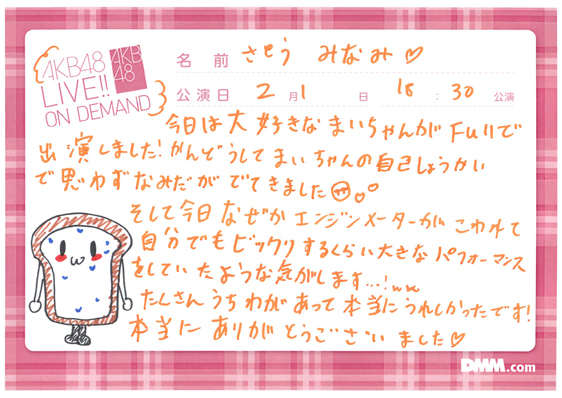 AKB48
LIVE!!
ON DEMAND
AKB
48
名前 さとう みなみ♡
公演日 2月1日 18:30公演
今日は大好きなまいちゃんがFullで
出演しました！かんどうしてまいちゃんの自己しょうかい
で思わずなみだがでてきました
そして今日なぜかエンジンメーターがこわれて
自分でもビックリするくらい大きなパフォーマンス
をしていたような気がします…!ww
たくさんうちわがあって本当にうれしかったです！
本当にありがとうございました♡
DMM.com